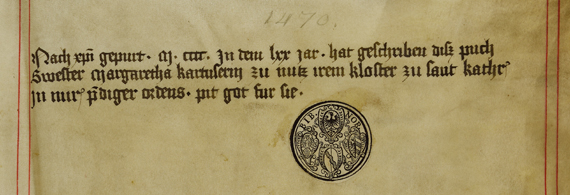 1470.
Nach xpi gepurt · M · cccc · Jn dem lxx jar · hat geschriben disz puch
Swester Margaretha kartuserin zu nutz irem kloster zu sant kathr̃
jn nur̃ p̃diger ordens · pit got fur sie ·
BIB NOR